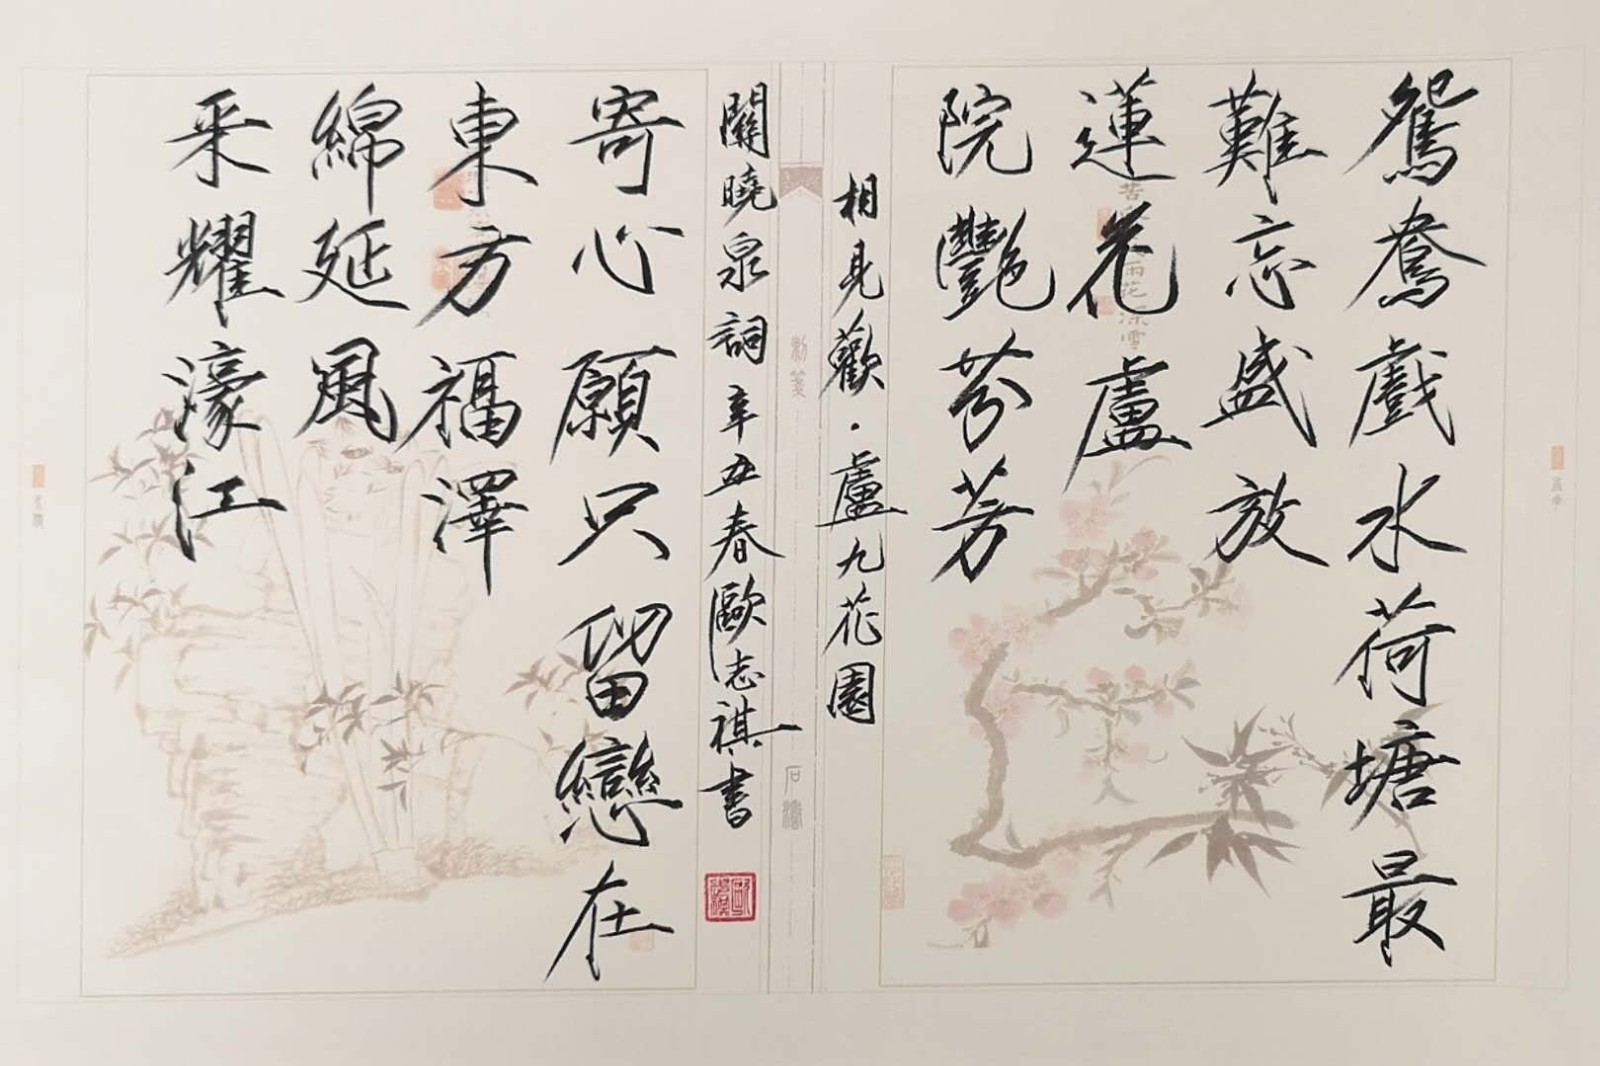 鴛鴦戲水荷塘最
難忘盛放
蓮花盧
院艷芬芳
相見歡·盧九花園
關曉泉詞辛丑春歐志祺書
寄心願只留戀在
東方福澤
綿延風
采耀濠江